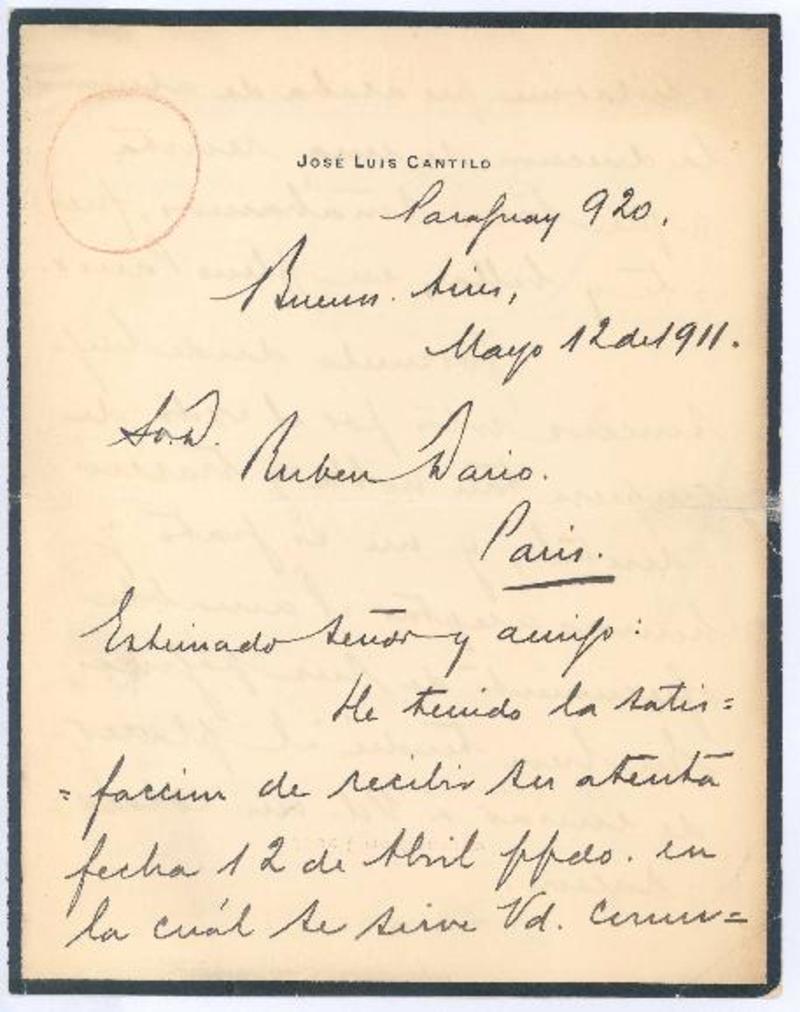 JOSÉ LUIS CANTILO
Paraguay 920.
Buenos Aires,
Mayo 12 de 1911.
Sr. D.
Ruben Dario.
Paris.
Estimado señor y amigo:
He tenido la satis=
=faccion de recibir su atenta
fecha 12 de Abril ppdo. en
la cuál se sirve Vd. comun=